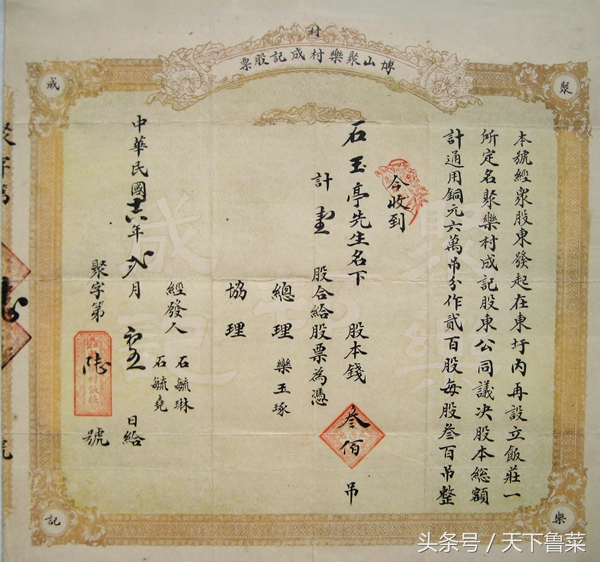 村
博山聚樂村成記股票
聚
成
樂
記
本號經眾股東發起在東圩內再設立飯莊一
所定名聚樂村成記股東公司議决股本總額
計通用銅元六萬吊分作貳百股每股叁百吊整
今收到
石玉亭先生名下 股本錢 叁佰 吊
計 壹 股合給股票為憑
總理 欒玉琢
協理
經發人 石毓琳
石毓堯
中華民國十六年 貳月 日給
聚字第 陸 號
聚樂
成記
头条号 / 天下鲁菜